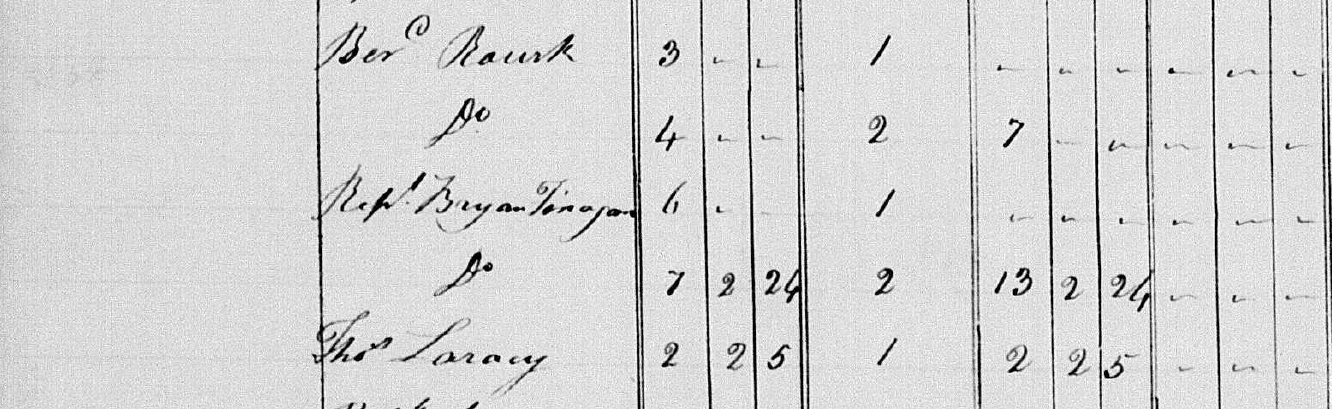 Ber^d Rourk 3 - - 1 - - - - - -
D^o 4 - - 2 7 - - - - -
Rep^s Bryan Finagan 6 - - 1 - - - - - -
D^o 7 2 24 2 13 2 24 - - -
Tho^s Laracy 2 2 5 1 2 2 5 - - -